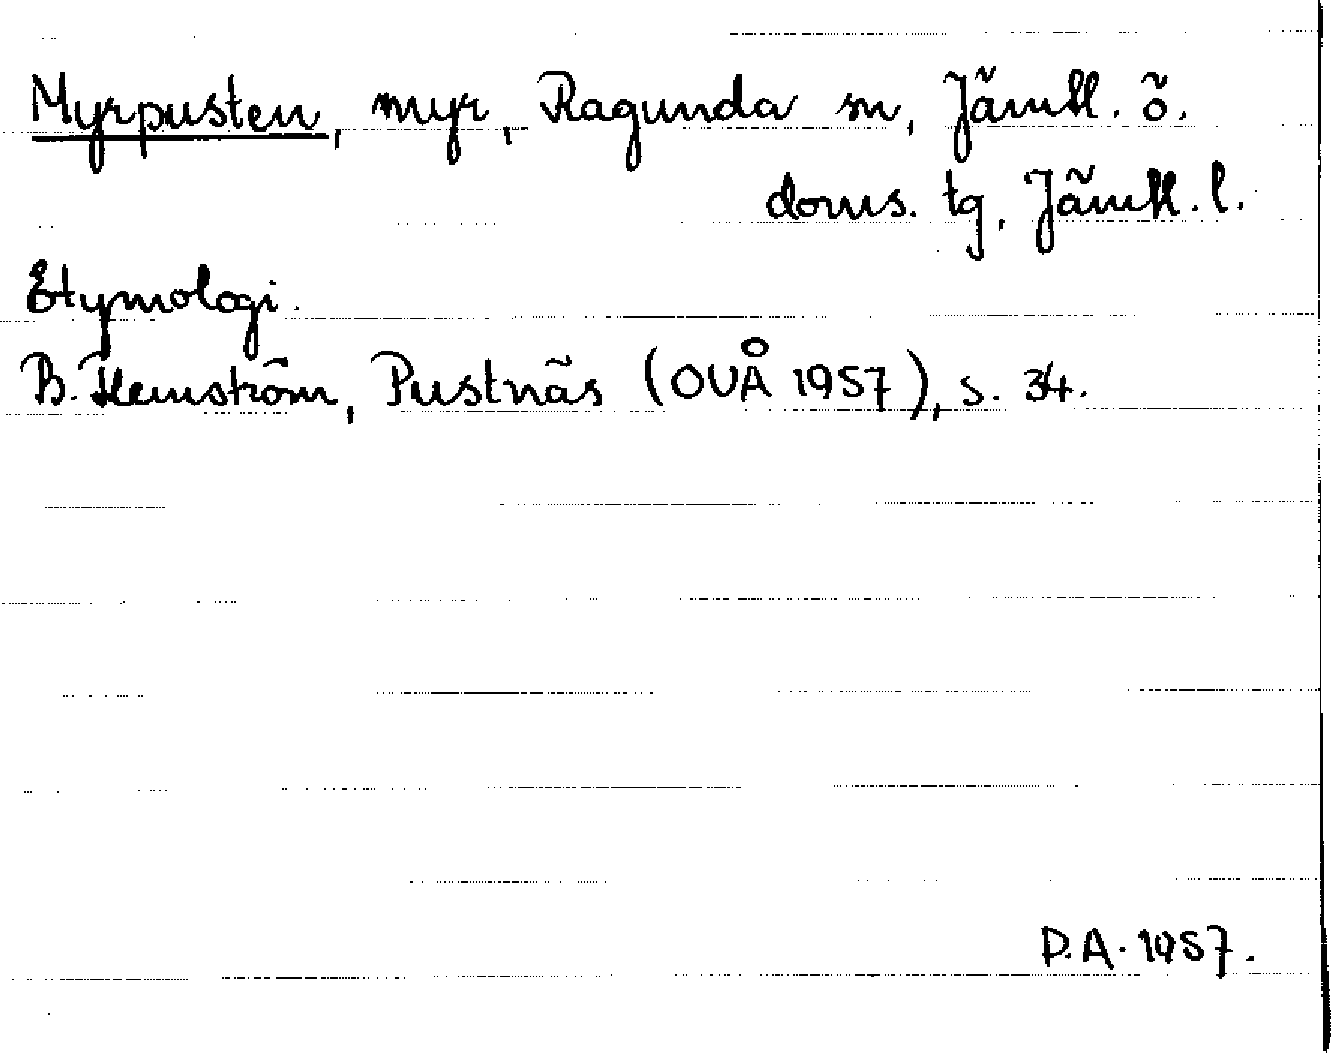 Myrpusten, myr, Ragunda sn, Jämtl. ö.
doms. tg, Jämtl. l.
Etymologi.
B. Hemström, Pustnäs (OUÅ 1957), s. 34.
P.A. 1957.